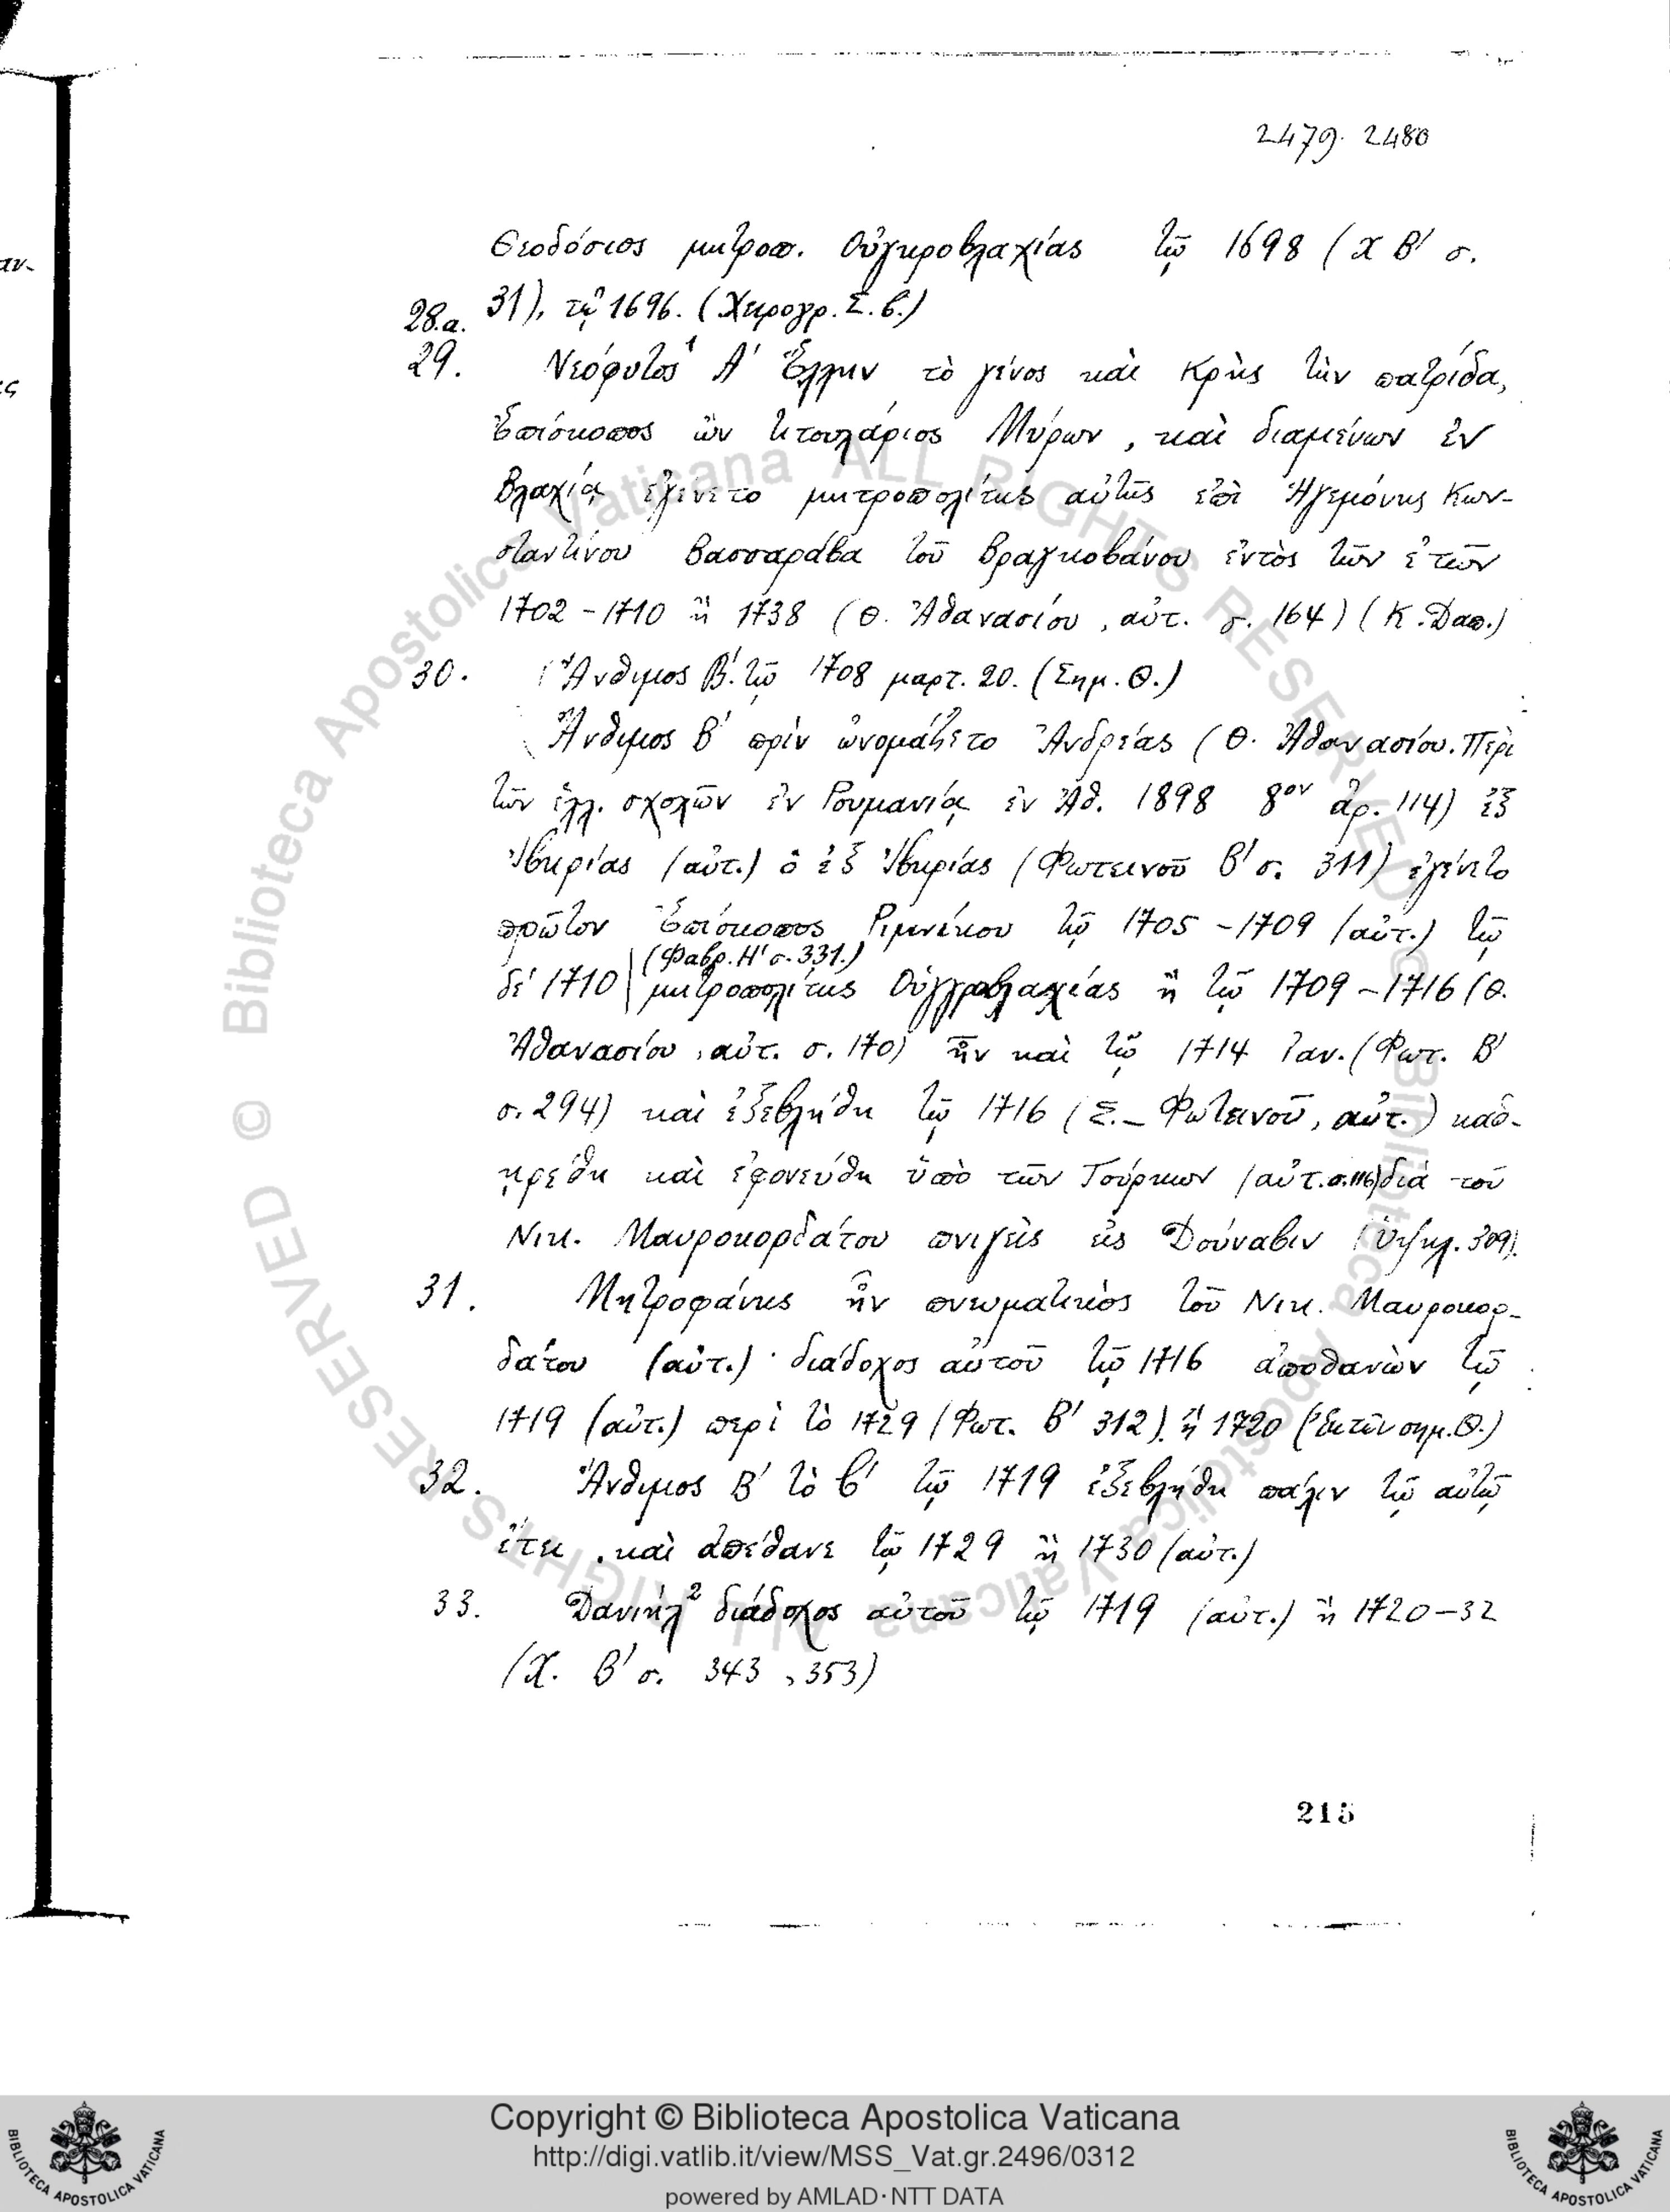 2479. 2480
Θεοδόσιος μητροπ. Οὐγκροβλαχίας τῷ 1698 (Χ Β' σ.
28.α. 31), τῷ 1696. (Χειρογρ. Σ. β.)
29. Νεόφυτος¹ Α' Ἕλλην τὸ γένος καὶ Κρὴς τὴν πατρίδα,
Ἐπίσκοπος ὢν τιτουλάριος Μύρων, καὶ διαμένων ἐν
Βλαχίᾳ ἐγένετο μητροπολίτης αὐτῆς ἐπὶ Ἡγεμόνης Κων-
σταντίνου Βασσαράβα τοῦ Βραγκοβάνου ἐντὸς τῶν ἐτῶν
1702 - 1710 ἢ 1738 (Θ. Ἀθανασίου, αὐτ. σ. 164) (Κ. Δαπ.)
30. Ἄνθιμος Β'. τῷ 1708 μαρτ. 20. (Σημ. Θ.)
Ἄνθιμος Β' πρίν ὠνομάζετο Ἀνδρέας (Θ. Ἀθανασίου. Περὶ
τῶν ἑλλ. σχολῶν ἐν Ρουμανίᾳ ἐν Ἀθ. 1898 8ον ἀρ. 114) ἐξ
Ἰβηρίας (αὐτ.) ὁ ἐξ Ἰβηρίας (Φωτεινοῦ Β' σ. 311) ἐγένετο
πρῶτον Ἐπίσκοπος Ριμνίκου τῷ 1705 - 1709 (αὐτ.) τῷ
(Φαβρ. Η' σ. 331.)
δέ 1710 μητροπολίτης Οὐγγροβλαχίας ἢ τῷ 1709 - 1716 (Θ.
Ἀθανασίου, αὐτ. σ. 170) ἦν καὶ τῷ 1714 Ἰαν. (Φωτ. Β'
σ. 294) καὶ ἐξεβλήθη τῷ 1716 (Σ. - Φωτεινοῦ, αὐτ.) καθ-
ῃρέθη καὶ ἐφονεύθη ὑπὸ τῶν Τούρκων (αὐτ. σ. 116) διά τοῦ
Νικ. Μαυροκορδάτου πνιγεὶς εἰς Δούναβιν (Ὑψηλ. 309).
31. Μητροφάνης ἦν πνευματικὸς τοῦ Νικ. Μαυροκορ-
δάτου (αὐτ.) · διάδοχος αὐτοῦ τῷ 1716 ἀποθανὼν τῷ
1719 (αὐτ.) περὶ τὸ 1729 (Φωτ. Β' 312). ἢ 1720 (Ἐκ τῶν σημ. Θ.)
32. Ἄνθιμος Β' τὸ β' τῷ 1719 ἐξεβλήθη πάλιν τῷ αὐτῷ
ἔτει, καὶ ἀπέθανε τῷ 1729 ἢ 1730 (αὐτ.)
33. Δανιὴλ² διάδοχος αὐτοῦ τῷ 1719 (αὐτ.) ἢ 1720 - 32
(Χ. Β' σ. 343, 353)
215
αν-
ς
© Biblioteca Apostolica Vaticana ALL RIGHTS RESERVED © Biblioteca Apostolica Vaticana ALL RIGHTS RESERVED
BIBLIOTECA APOSTOLICA VATICANA
Copyright © Biblioteca Apostolica Vaticana
http://digi.vatlib.it/view/MSS_Vat.gr.2496/0312
powered by AMLAD·NTT DATA
BIBLIOTECA APOSTOLICA VATICANA